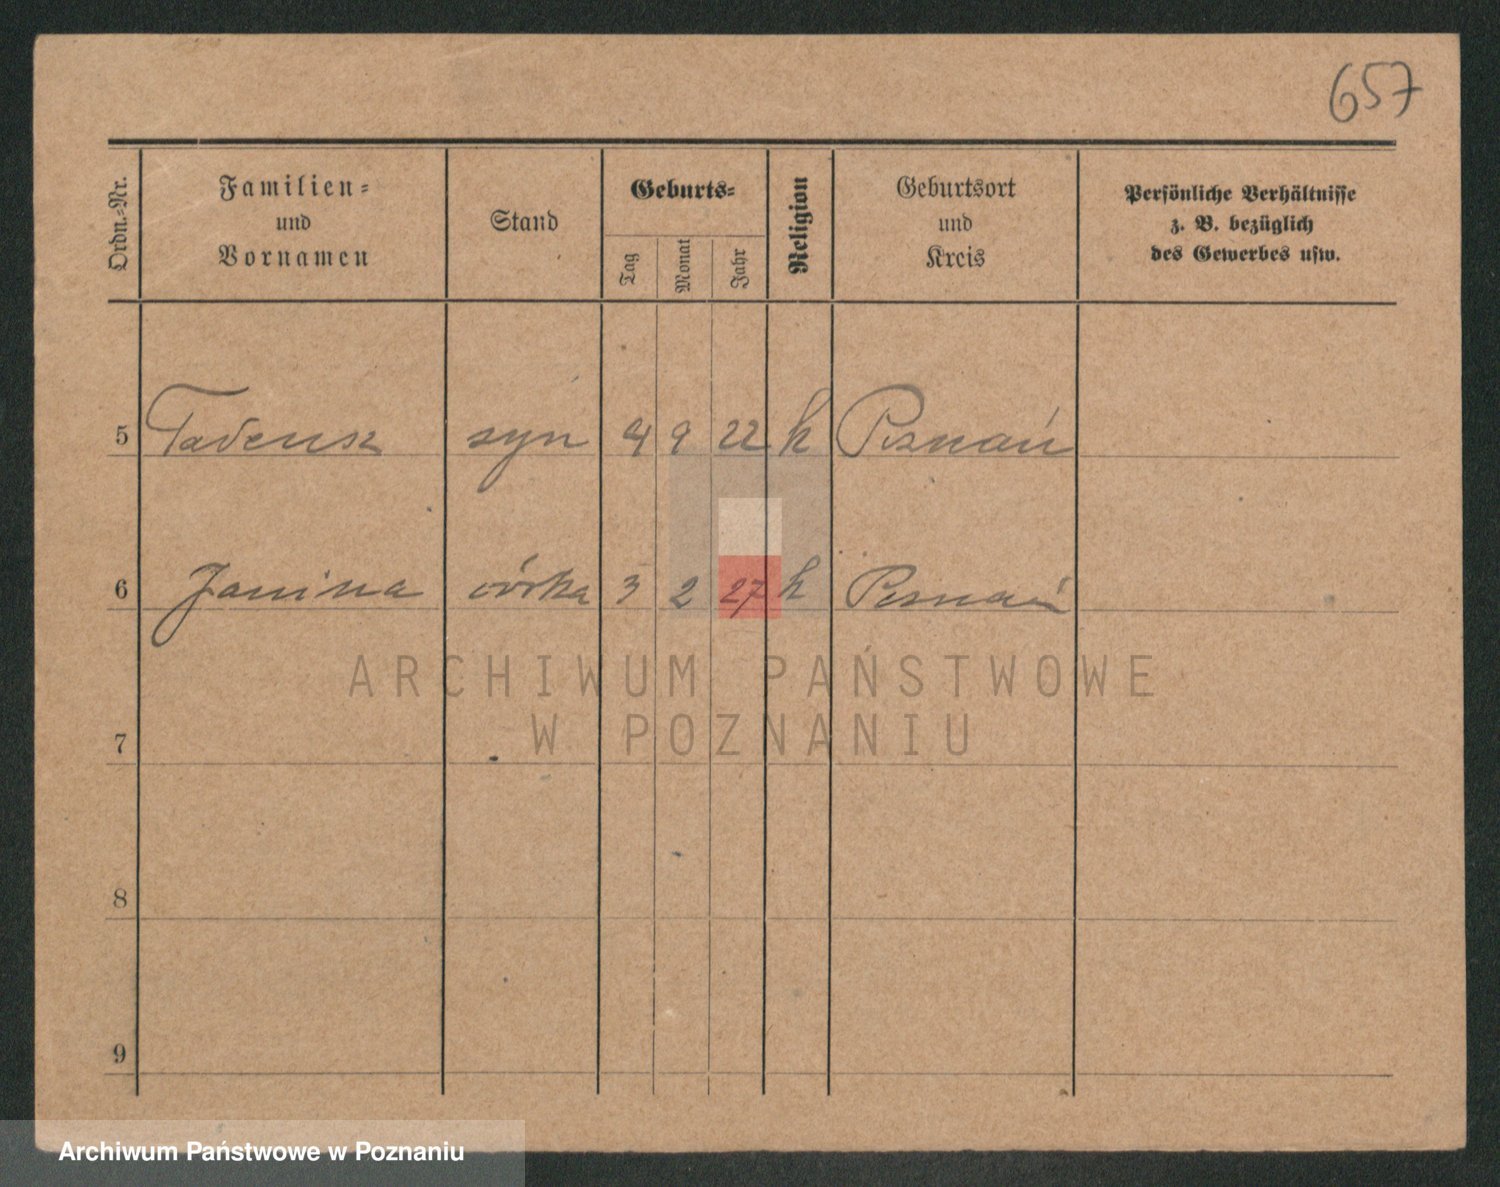 657
Ordn.-Nr.
Familien-
und
Vornamen
Stand
Geburts-
Tag
Monat
Jahr
Religion
Geburtsort
und
Kreis
Persönliche Verhältnisse
z. B. bezüglich
des Gewerbes usw.
5 Tadeusz syn 4 9 22 k Poznań
6 Janina córka 3 2 27 k Poznań
ARCHIWUM PAŃSTWOWE
W POZNANIU
7
8
9
Archiwum Państwowe w Poznaniu